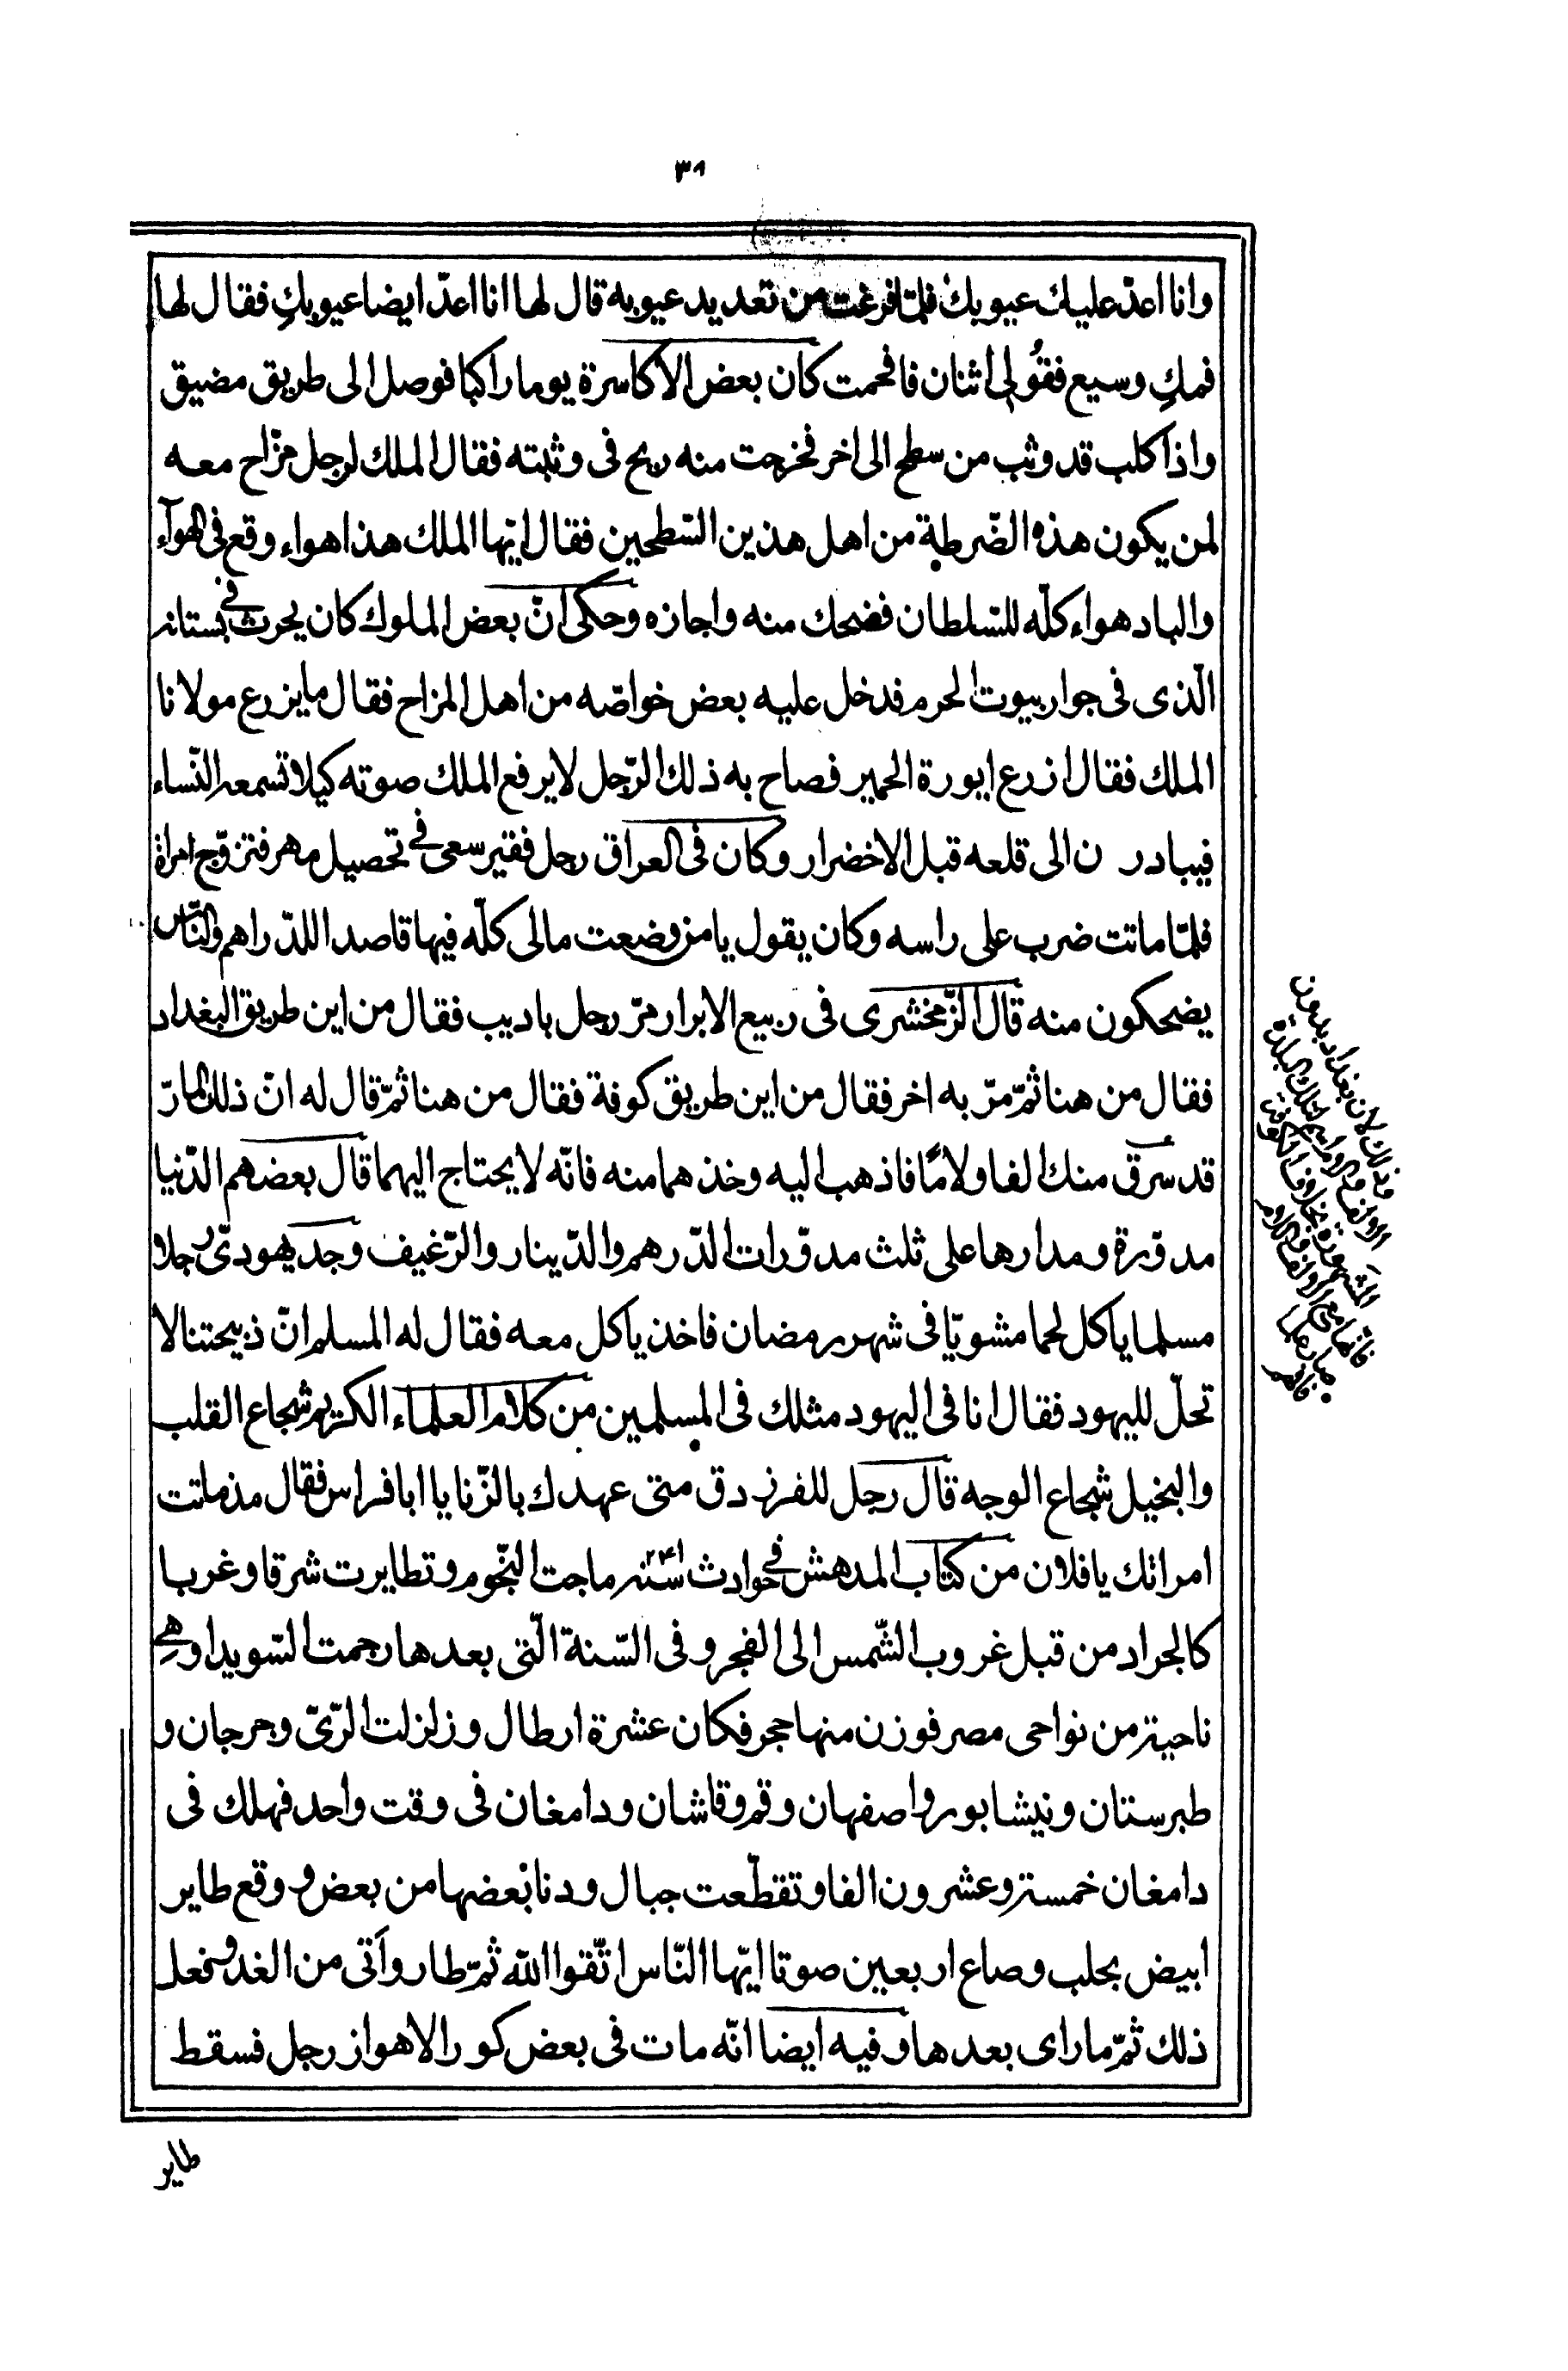 ٣٨
وانا اعدّ عليك عيوبك فلمّا فرغت من تعديد عيوبه قال لها انا اعدّ ايضا عيوبكِ فقال لها
فمكِ وسيع فقُولى اثنان فافحمت كان بعض الاكاسرة يوما راكبا فوصل الى طريق مضيق
واذا كلب قد وثب من سطح الى اخر فخرجت منه ريح فى وثبته فقال الملك لرجل مزّاح معه
لمن يكون هذه الضّرطة من اهل هذين السّطحين فقال ايّها الملك هذا هواء وقع فى الهوآء
والباد هواء كلّه للسّلطان فضحك منه واجازه وحكى انّ بعض الملوك كان يحرث فى بستانه
الّذى فى جوار بيوت الحرم فدخل عليه بعض خواصّه من اهل المزاح فقال ما يزرع مولانا
الملك فقال ازرع ايورة الحمير فصاح به ذلك الرّجل لا يرفع الملك صوته كيلا تسمعه النّساء
فيبادر ن الى قلعه قبل الاخضرار وكان فى العراق رجل فقير سعى فى تحصيل مهر فتزوّج امراة
فلمّا ماتت ضرب على راسه وكان يقول يا من وضعت مالى كلّه فيها قاصدا للدّراهم والنّاس
يضحكون منه قال الزّمخشرى فى ربيع الابرار مرّ رجل باديب فقال من اين طريق البغداد
فقال من هنا ثمّ مرّ به اخر فقال من اين طريق كوفة فقال من هنا ثمّ قال له انّ ذلك المارّ
قد سرق منك الفا ولامًا فاذهب اليه وخذهما منه فانّه لا يحتاج اليهما قال بعضهم الدّنيا
مدوّرة ومدارها على ثلث مدوّرات الدّرهم والدّينار والرّغيف وجد يهودىّ رجلا
مسلما ياكل لحما مشويّا فى شهر رمضان فاخذ ياكل معه فقال له المسلم انّ ذبيحتنا لا
تحلّ لليهود فقال انا فى اليهود مثلك فى المسلمين من كلام العلماء الكريم شجاع القلب
والبخيل شجاع الوجه قال رجل للفرزدق متى عهدك بالزّنا يا ابا فراس فقال مذ ماتت
امراتك يا فلان من كتاب المدهش فى حوادث سنه ٢٤١ ماجت النّجوم وتطايرت شرقا وغربا
كالجراد من قبل غروب الشّمس الى الفجر وفى السّنة الّتى بعدها رجمت السّويدا وهى
ناحية من نواحى مصر فوزن منها حجر فكان عشرة ارطال وزلزلت الرّىّ وجرجان و
طبرستان ونيشابور واصفهان وقم وقاشان ودامغان فى وقت واحد فهلك فى
دامغان خمسة وعشرون الفا وتقطّعت جبال ودنا بعضها من بعض و وقع طاير
ابيض بحلب وصاع اربعين صوتا ايّها النّاس اتّقوا الله ثمّ طار واَتى من الغد وفعل
ذلك ثمّ ما راى بعدها وفيه ايضا انّه مات فى بعض كور الاهواز رجل فسقط
طاير
وذلك لان بغداد بدون